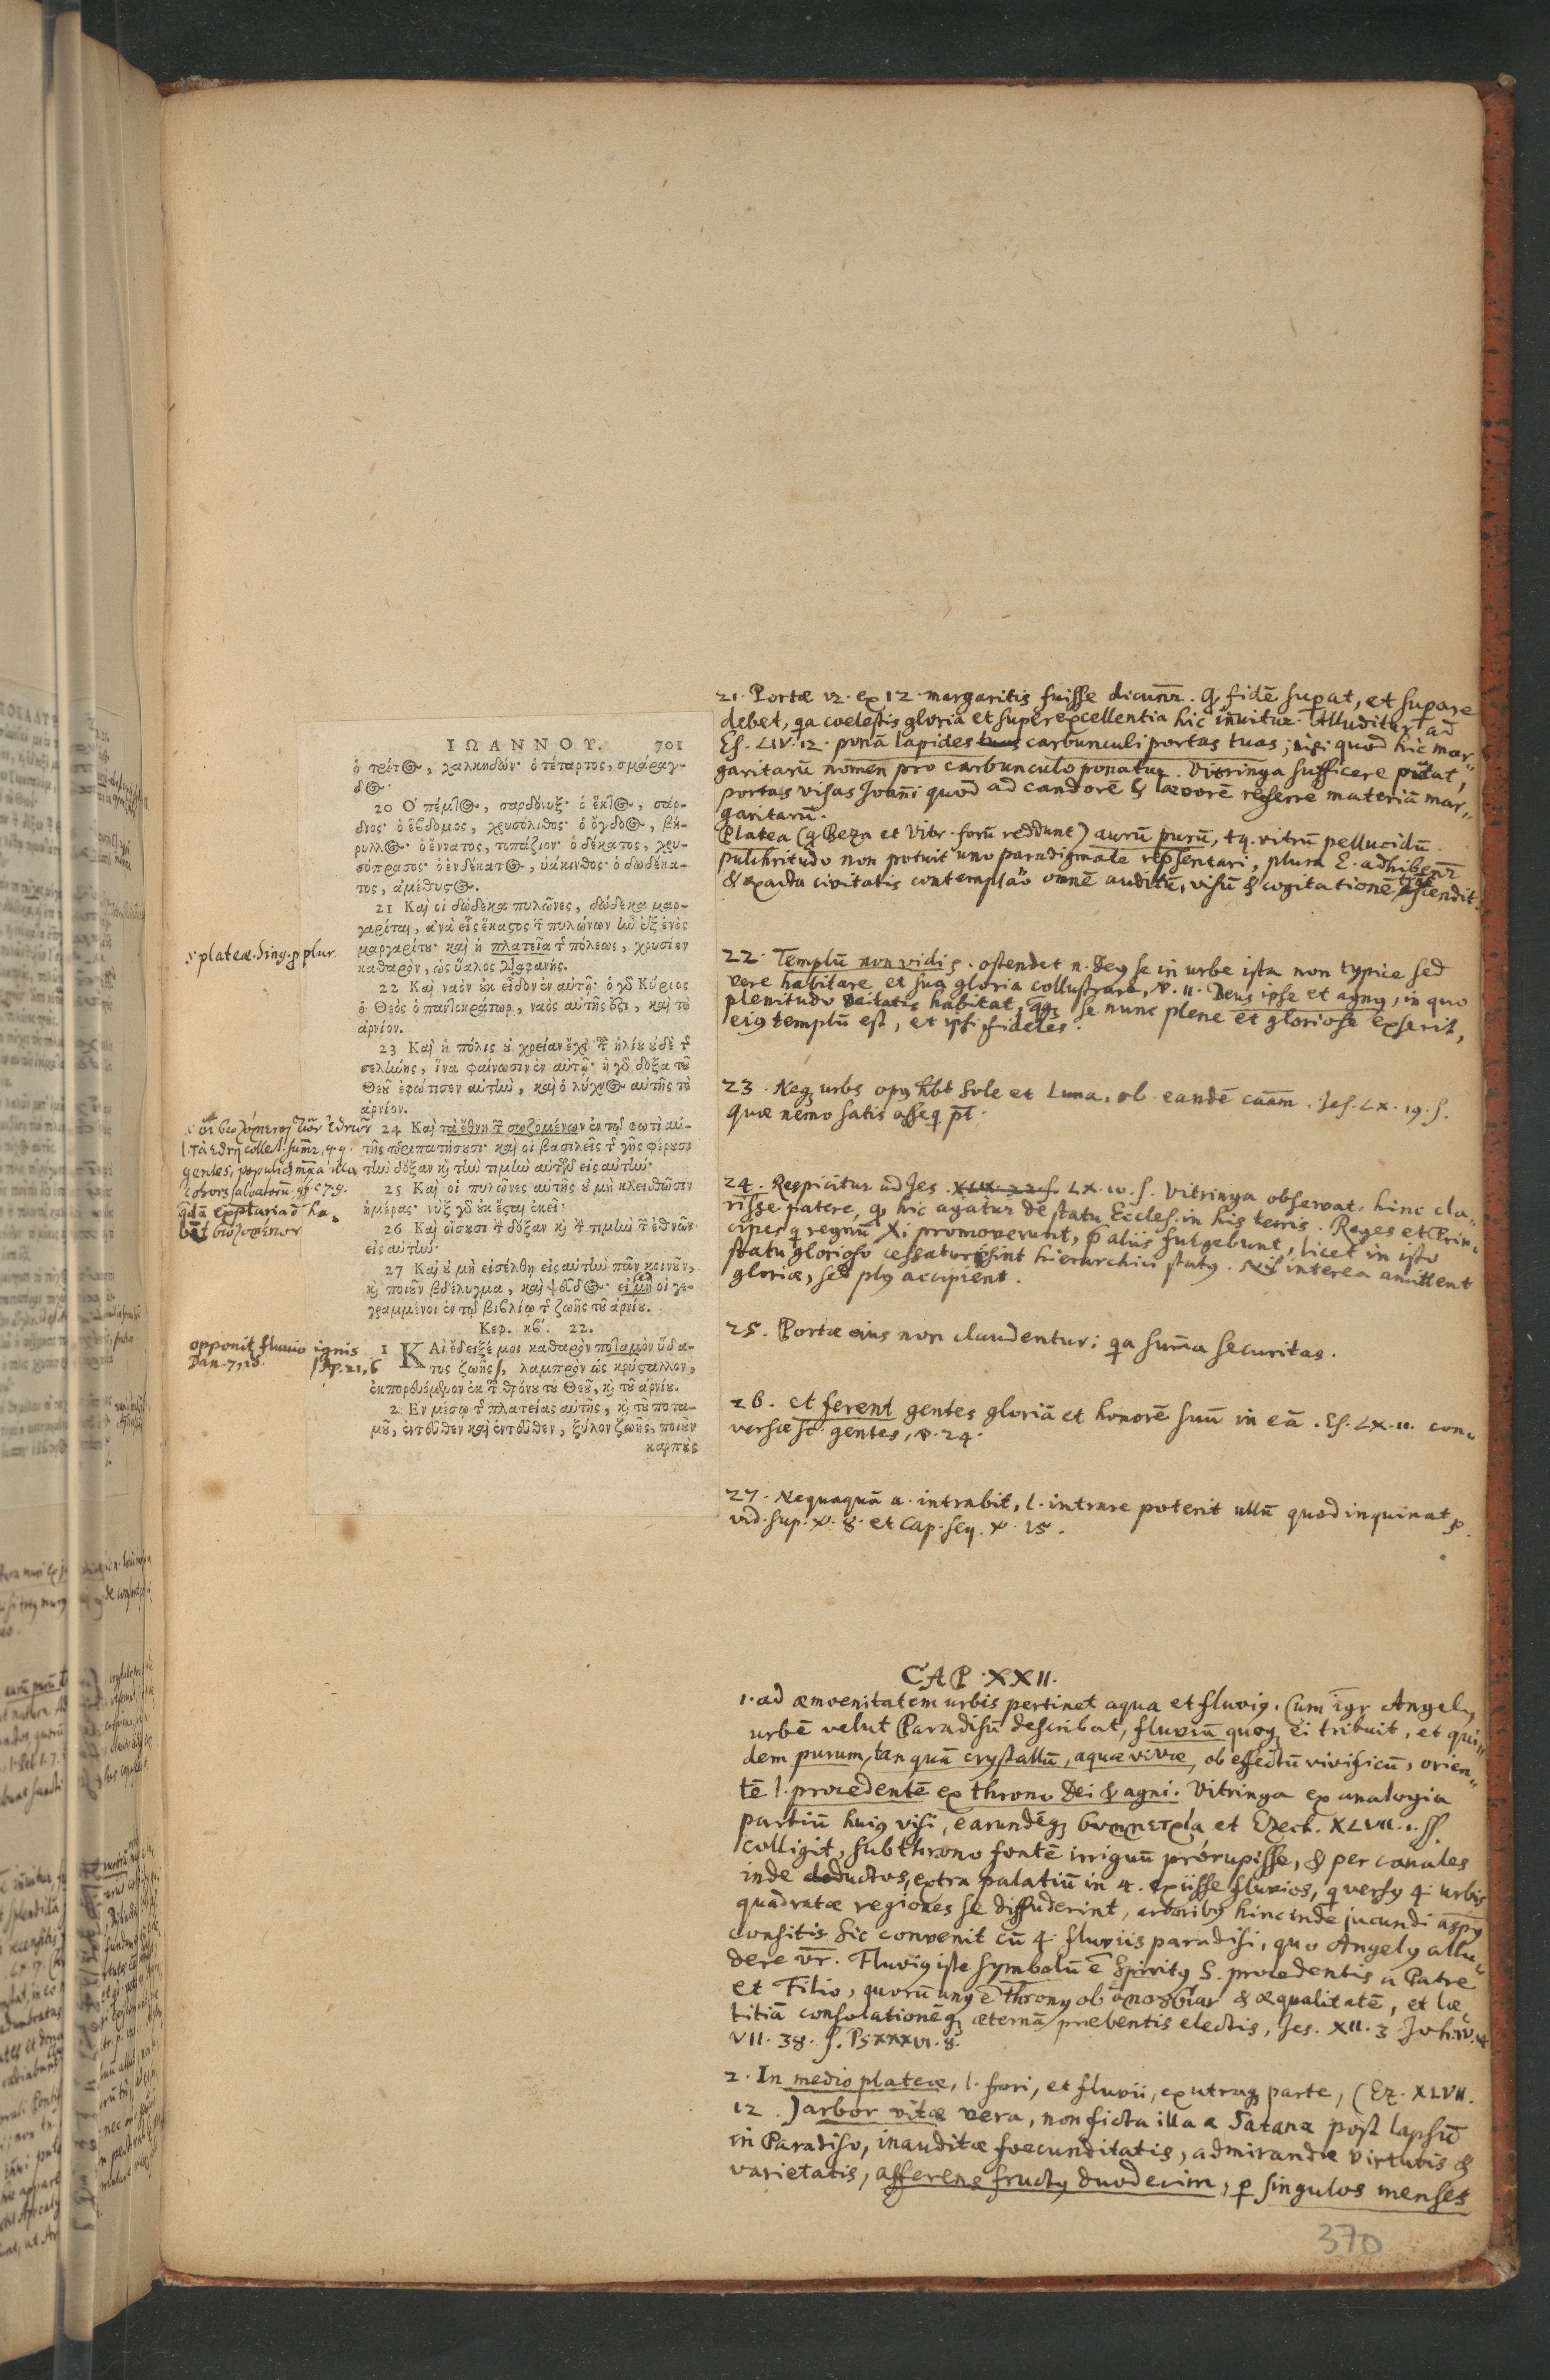 ΙΩΑΝΝΟΥ. 701
ὁ τρίτ☉, χαλκηδών· ὁ τέταρτος, σμάραγ-
δ☉·
20 Ὁ πέμπτ☉, σαρδόνυξ· ὁ ἕκτ☉, σάρ-
διος· ὁ ἕβδομος, χρυσόλιθος· ὁ ὄγδο☉, βή-
ρυλλ☉· ὁ ἔννατος, τοπάζιον· ὁ δέκατος, χρυ-
σόπρασος· ὁ ἑνδέκατ☉, ὑάκινθος· ὁ δωδέκα-
τος, ἀμέθυστ☉.
21 Καὶ οἱ δώδεκα πυλῶνες, δώδεκα μαρ-
γαρῖται, ἀνὰ εἷς ἕκαστος τῶν πυλώνων ἦν ἐξ ἑνὸς
μαργαρίτου· καὶ ἡ πλατεῖα τῆς πόλεως, χρυσίον
καθαρὸν, ὡς ὕαλος διαφανής.
22 Καὶ ναὸν οὐκ εἶδον ἐν αὐτῇ· ὁ γὸ Κύριος
ὁ Θεὸς ὁ παντοκράτωρ, ναὸς αὐτῆς ἐστι, καὶ τὸ
ἀρνίον.
23 Καὶ ἡ πόλις οὐ χρείαν ἔχει τοῦ ἡλίου οὐδὲ τῆς
σελήνης, ἵνα φαίνωσιν ἐν αὐτῇ· ἡ γὸ δόξα τοῦ
Θεοῦ ἐφώτισεν αὐτὴν, καὶ ὁ λύχν☉ αὐτῆς τὸ
ἀρνίον.
24 Καὶ τὰ ἔθνη τῶν σωζομένων ἐν τῷ φωτὶ αὐ-
τῆς περιπατήσουσι· καὶ οἱ βασιλεῖς τῆς γῆς φέρουσι
τὴν δόξαν κỳ τὴν τιμὴν αὐτῶν εἰς αὐτήν·
25 Καὶ οἱ πυλῶνες αὐτῆς οὐ μὴ κλεισθῶσιν
ἡμέρας· νὺξ γὸ οὐκ ἔσται ἐκεῖ·
26 Καὶ οἴσουσι τὴν δόξαν κỳ τὴν τιμὴν τῶν ἐθνῶν
εἰς αὐτήν·
27 Καὶ οὐ μὴ εἰσέλθῃ εἰς αὐτὴν πᾶν κοινοῦν,
κỳ ποιοῦν βδέλυγμα, καὶ ψεῦδ☉· εἰ μὴ οἱ γε-
γραμμένοι ἐν τῷ βιβλίῳ τῆς ζωῆς τοῦ ἀρνίου.
Κεφ. κβ΄. 22.
1 ΚΑὶ ἔδειξέ μοι καθαρὸν ποταμὸν ὕδα-
τος ζωῆς, λαμπρὸν ὡς κρύσταλλον,
ἐκπορευόμενον ἐκ τοῦ θρόνου τοῦ Θεοῦ, κỳ τοῦ ἀρνίου.
2 Ἐν μέσῳ τῆς πλατείας αὐτῆς, κỳ τοῦ ποτα-
μοῦ, ἐντεῦθεν καὶ ἐντεῦθεν, ξύλον ζωῆς, ποιοῦν
καρποὺς
plateæ. sing. p plur.
gentes, populi
opponit fluvio ignis
Dan. 7, 10.
Ap. 21, 6
21. Portæ 12. ex 12 margaritis fuisse dicunr. q fidē supat, et supare
debet, qa coelestis gloria et superexcellentia hic iñuitur. Alluditur ad
Es. LIV. 12. ponā lapides carbunculi portas tuas; nisi quod hic mar„
garitarū nomen pro carbunculo ponatur. Vitringa sufficere putat,
portas visas Joañi quod ad candorē & lævorē referre materiā mar„
garitarū.
Platea (q Beza et Vitr. forū reddunt) aurū purū, tq. vitrū pellucidū.
pulchritudo non potuit uno paradigmate repsentari, plura E. adhibenr
& exacta civitatis contemplaō omnē auditū, visū & cogitationē
22. Templū non vidi. ostendet n. Deg se in urbe ista non typice sed
vere habitare et sua gloria collustrare, v. 11. Deus ipse et agng, in quo
plenitudo Deitatis habitat, se nunc plene et gloriose exserit,
eig templū est, et ipsi fideles.
23. Neq urbs opg hbt Sole et Luna, ob eandē caām. Jes. LX. 19. s.
quæ nemo satis asseq pt.
24. Respicitur ad Jes. LX. 10. s. Vitringa observat, hinc cla„
risse patere, q hic agatur de statu Eccles. in his terris. Reges et Prin„
cipes q regnū Xi promoverunt, p aliis fulgebunt, licet in isto
statu glorioso hierarchici statg. interea amittent
gloriæ, sed plg accipient.
25. Portæ eius non claudentur; qa suma securitas.
26. et ferent gentes gloriā et honorē suū in eā. Es. LX. 11. con„
versæ sc. gentes, v. 24.
27. Nequaquā a. intrabit, l. intrare poterit ullū quod inquinat p.
vid. sup. v. 8. et Cap. seq. v. 15.
CAP. XXII.
1. ad æmoenitatem urbis pertinet aqua et fluvig. Cum igr Angelg
urbē velut Paradisū describat, fluviū quoq ei tribuit, et qui„
dem purum, tanquā crystallū, aquæ vivæ, ob effectū vivificū, orien„
tē l. procedentē ex throno Dei & agni. Vitringa ex analogia
partiū huig visi, earundēq συμμετρία et Ezech. XLVII. 1. ss.
colligit, sub throno fontē irriguū prórupisse, & per canales
inde deductos, extra palatiū in 4. exiisse fluvios, q versg 4. urbis
quadratæ regiones se diffuderint, arboribg hinc inde jucundi aspg
consitis. Sic convenit cū 4. fluviis paradisi, quo Angelg allu„
dere vr. Fluvig iste symbolū ē Spiritg S. procedentis a Patre
et Filio, quorū ung ē throng ob ὁμοουσίαν & æqualitatē, et læ„
titiā consolationēq æternā præbentis electis, Jes. XII. 3 Joh.
VII. 38. s. Ps XXXVI. 8.
2. In medio plateæ, l. fori, et fluvii, ex utraq parte, (Ez. XLVII.
12.) arbor vitæ vera, non ficta illa a Satana post lapsū
in Paradiso, inauditæ foecunditatis, admirandæ virtutis &
varietatis, afferens fructg duodecim, p singulos menses
370